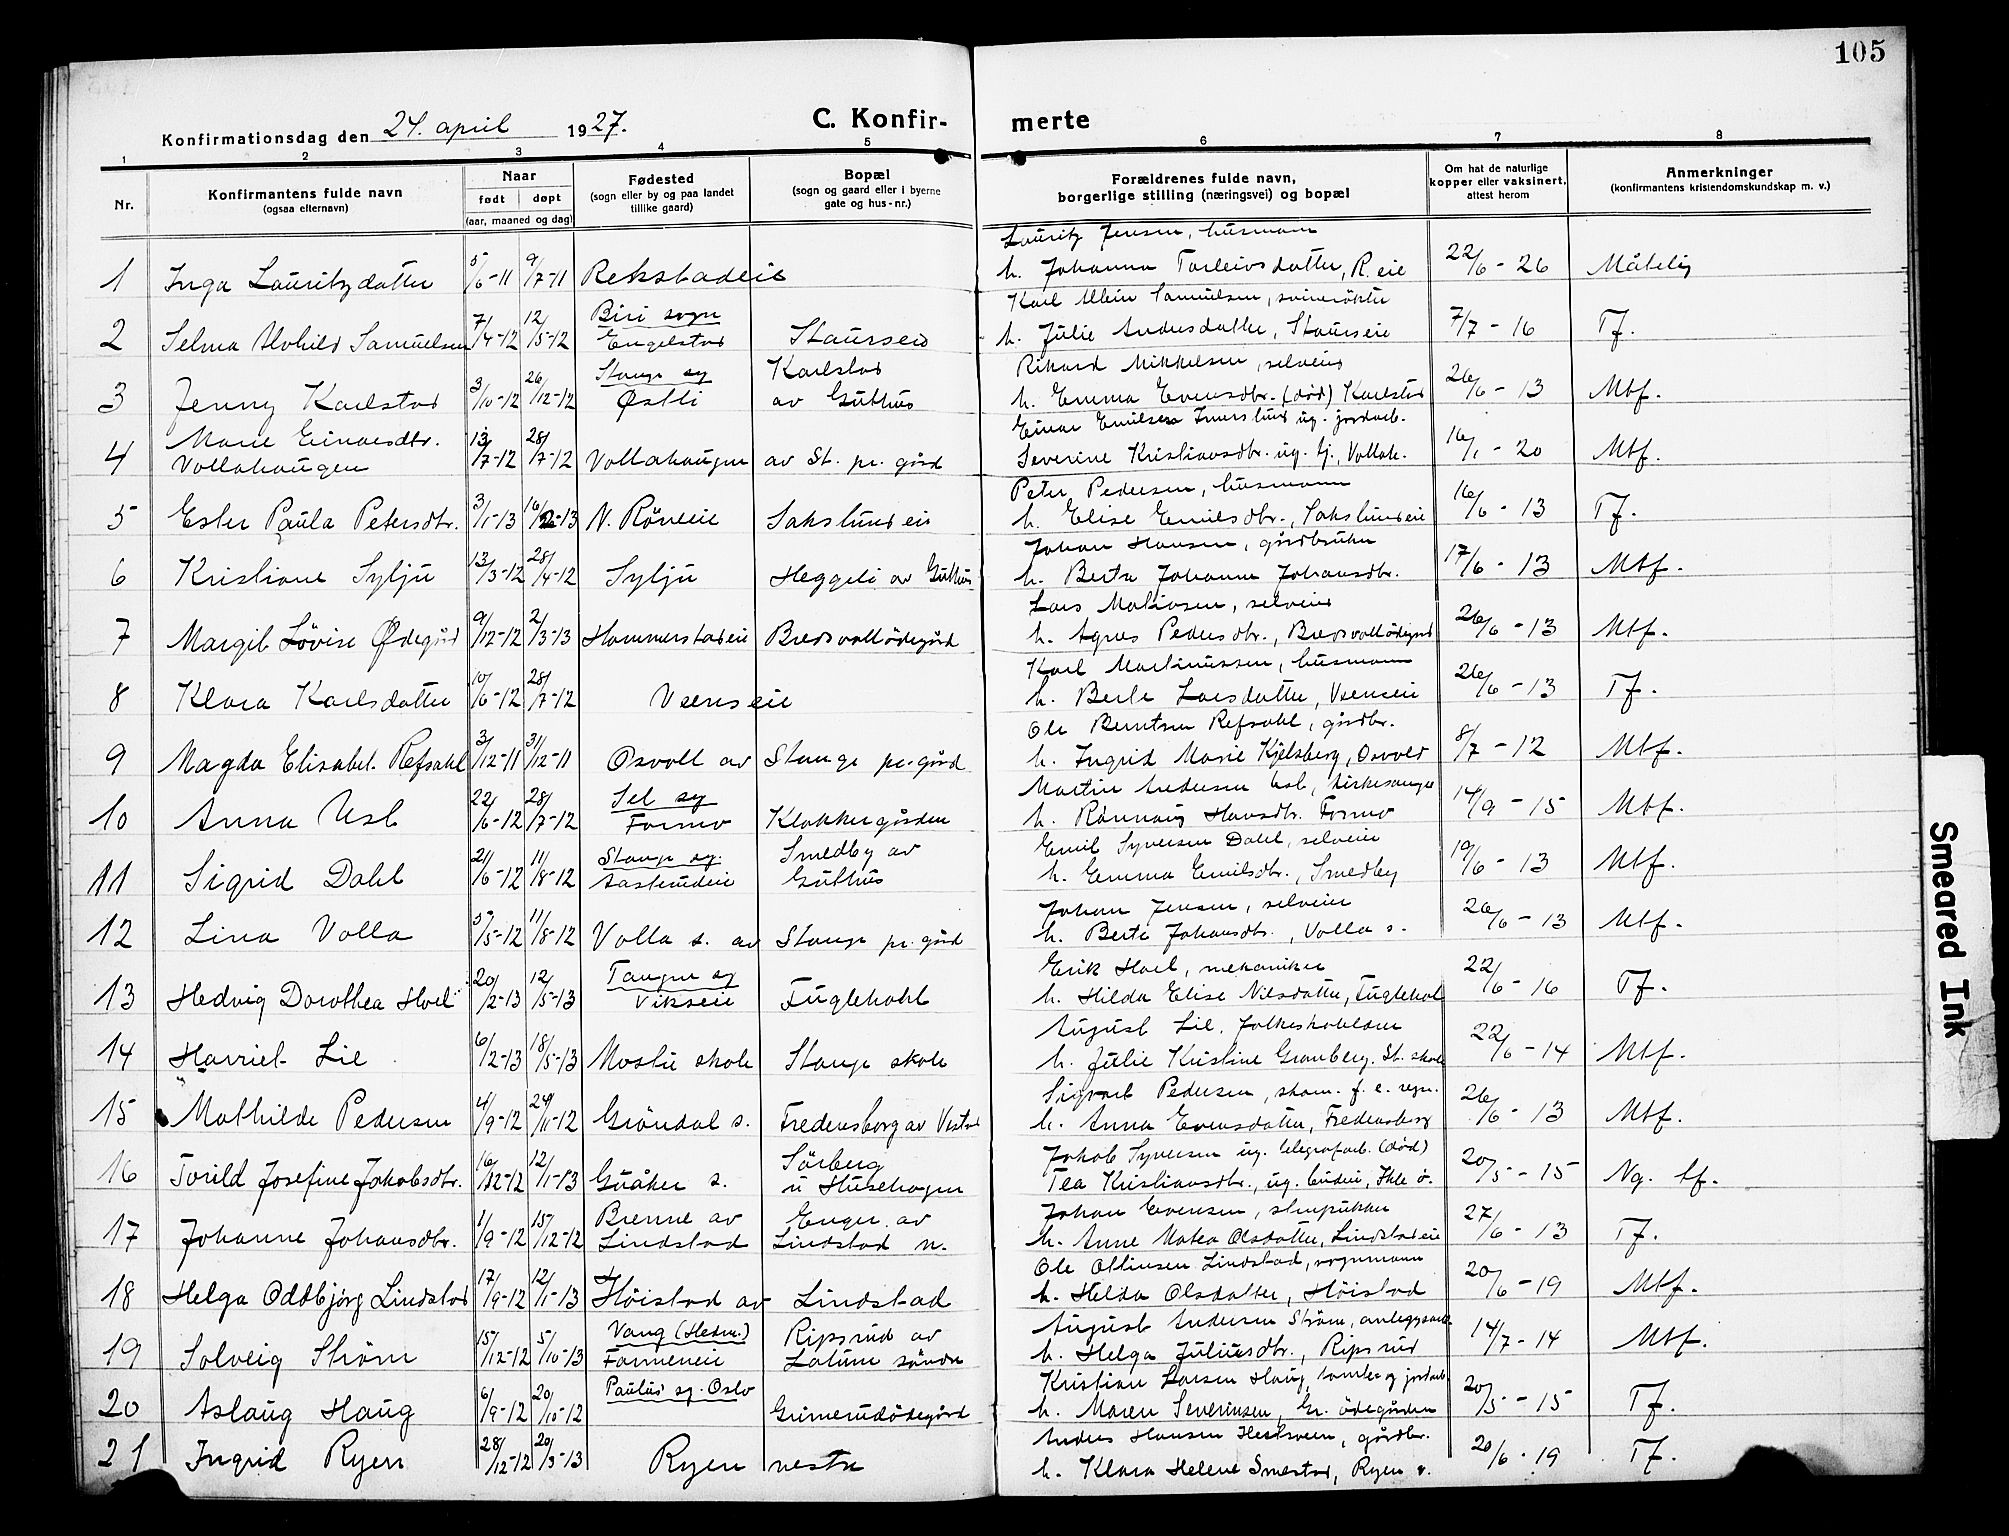 105
Konfirmationsdag den 24. april 1927.
C. Konfir-
merte
1 2 3 4 5 6 7 8
Nr.
Konfirmantens fulde navn
(ogsaa efternavn)
Naar
født døpt
(aar, maaned og dag)
Fødested
(sogn eller by og paa landet
tillike gaard)
Bopæl
(sogn og gaard eller i byerne
gate og hus-nr.)
Forældrenes fulde navn,
borgerlige stilling (næringsvei) og bopæl
Om hat de naturlige
kopper eller vaksinert.
attest herom
Anmerkninger
(konfirmantens kristendomskundskap m. v.)
Lauritz Jensen, husmann
1 Inga Lauritzdatter 5/6-11 9/7-11 Rekstadeie h. Johanna Torleivsdatter, R.eie 22/6-26 Måtelig
Biri sogn Karl Albin Samuelsen, svinerøkter
2 Selma Alvhild Samuelsen 7/4-12 12/5-12 Engelstad Staurseie h. Julie Andersdatter, Staurseie 7/7-16 Tf.
Stange sg Karlstad Rikard Mikkelsen, selveier
3 Jenny Karlstad 3/10-12 26/12-12 Østli av Guthus h. Emma Evensdtr. (død) Karlstad 26/6-13 Mtf.
Marie Einarsdtr. Einar Emilsen Imerslund ug. jordarb.
4 Vollahaugen 13/7-12 28/7-12 Vollahaugen av St. pr. gård Severine Kristiansdtr. ug. tj., Vollah. 16/1-20 Mtf.
Peter Pedersen, husmann
5 Ester Paula Petersdtr. 3/1-13 16/2-13 N. Røneie Sakslundeie h. Elise Emilsdtr., Sakslundeie 16/6-13 Tf.
Johan Hansen, gårdbruker
6 Kristiane Sylju 13/3-12 28/4-12 Sylju Heggeli av Guthus h. Berta Johanne Johansdtr. 17/6-13 Mtf.
Lars Mathisen, selveier
7 Margit Lovise Ødegård 9/12-12 2/3-13 Hammerstadeie Bredsvollødegård h. Agnes Pedersdtr., Bredsvollødegård 26/6-13 Mtf.
Karl Martinussen, husmann
8 Klara Karlsdatter 10/6-12 28/7-12 Veenseie h. Berte Larsdatter, Veenseie 26/6-13 Tf.
Ole Berntsen Refsahl, gårdbr.
9 Magda Elisabet Refsahl 3/12-11 31/12-11 Osvoll av Stange pr. gård h. Ingrid Marie Kjelsberg, Osvold 8/7-12 Mtf.
Sel sg Martin Andersen Usb, kirkesanger
10 Anna Usb 22/6-12 28/7-12 Formo Klokkergården h. Rønnaug Hansdtr. Formo 14/9-15 Mtf.
Stange sg. Smedby av Emil Syversen Dahl, selveier
11 Sigrid Dahl 21/6-12 11/8-12 Aasterudeie Guthus h. Emma Emilsdtr., Smedby 19/6-13 Mtf.
Johan Jensen, selveier
12 Lina Volla 5/5-12 11/8-12 Volla s. av Stange pr. gård h. Berte Johansdtr., Volla s. 26/6-13 Mtf.
Tangen sg Erik Hoel, mekaniker
13 Hedvig Dorothea Hoel 20/2-13 12/5-13 Vikseie Fuglehohl h. Hilda Elise Nilsdatter, Fuglehol 22/6-16 Tf.
August Lie, folkeskolelærer
14 Harriet Lie 6/2-13 18/5-13 Mostu skole Stange skole h. Julie Kristine Granberg, St. skole 22/6-14 Mtf.
Sigvart Pedersen, skom. f. e. regn.
15 Mathilde Pedersen 4/9-12 24/11-12 Grøndal s. Fredensborg av Vestad h. Anna Evensdatter, Fredensborg 26/6-13 Mtf.
Sørberg Jakob Syversen ug. telegrafarb. (død)
16 Torild Josefine Jakobsdtr. 16/12-12 12/1-13 Guåker s. u Husehagen Tea Kristiansdtr., ug. budeie, Ihle ø. 20/5-15 Ng. tf.
Brenne av Enger av Johan Evensen, stenpukker
17 Johanne Johansdtr. 1/9-12 15/12-12 Lindstad Lindstad n. h. Anne Matea Olsdatter, Lindstadeie 27/6-13 Tf.
Ole Ottinsen Lindstad, vognmann
18 Helga Oddbjørg Lindstad 17/9-12 12/1-13 Høistad av Lindstad h. Helda Olsdatter, Høistad 20/6-19 Mtf.
Vang (Hedm.) Ripsrud av August Andersen Strøm, anleggsarb.
19 Solveig Strøm 15/12-12 5/10-13 Farmeneie Lalum søndre h. Helga Juliusdtr., Ripsrud 14/7-14 Mtf.
Paulus sg. Oslo Kristian Larsen Haug, tømber og jordarb.
20 Aslaug Haug 6/9-12 20/10-12 Grimerudødegård h. Maren Severinsen, Gr. ødegården 20/5-15 Tf.
Anders Hansen Heksveen, gårdbr.
21 Ingrid Ryen 28/12-12 20/3-13 Ryen vestre h. Klara Helene Smestad, Ryen v. 20/6-19 Tf.
Smeared Ink